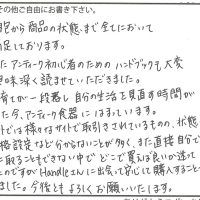 その他ご自由にお書き下さい。
から商品の状態まで全てにおいて
足しております。
アンティーク初心者のためのハンドブックも大変
味深く読ませていただきました。
育てが一段落し自分の生活を見直す時間が
た今、アンティーク食器にはまっています。
トでは様々なサイトで取引きされているものの、状態
格設定など分からないことが多く、また直接自分で
に取ることもできない中でどこで買えば良いか迷って
のですがHandleさんに出会って安心して購入することが
ました。今後ともよろしくお願いいたします。